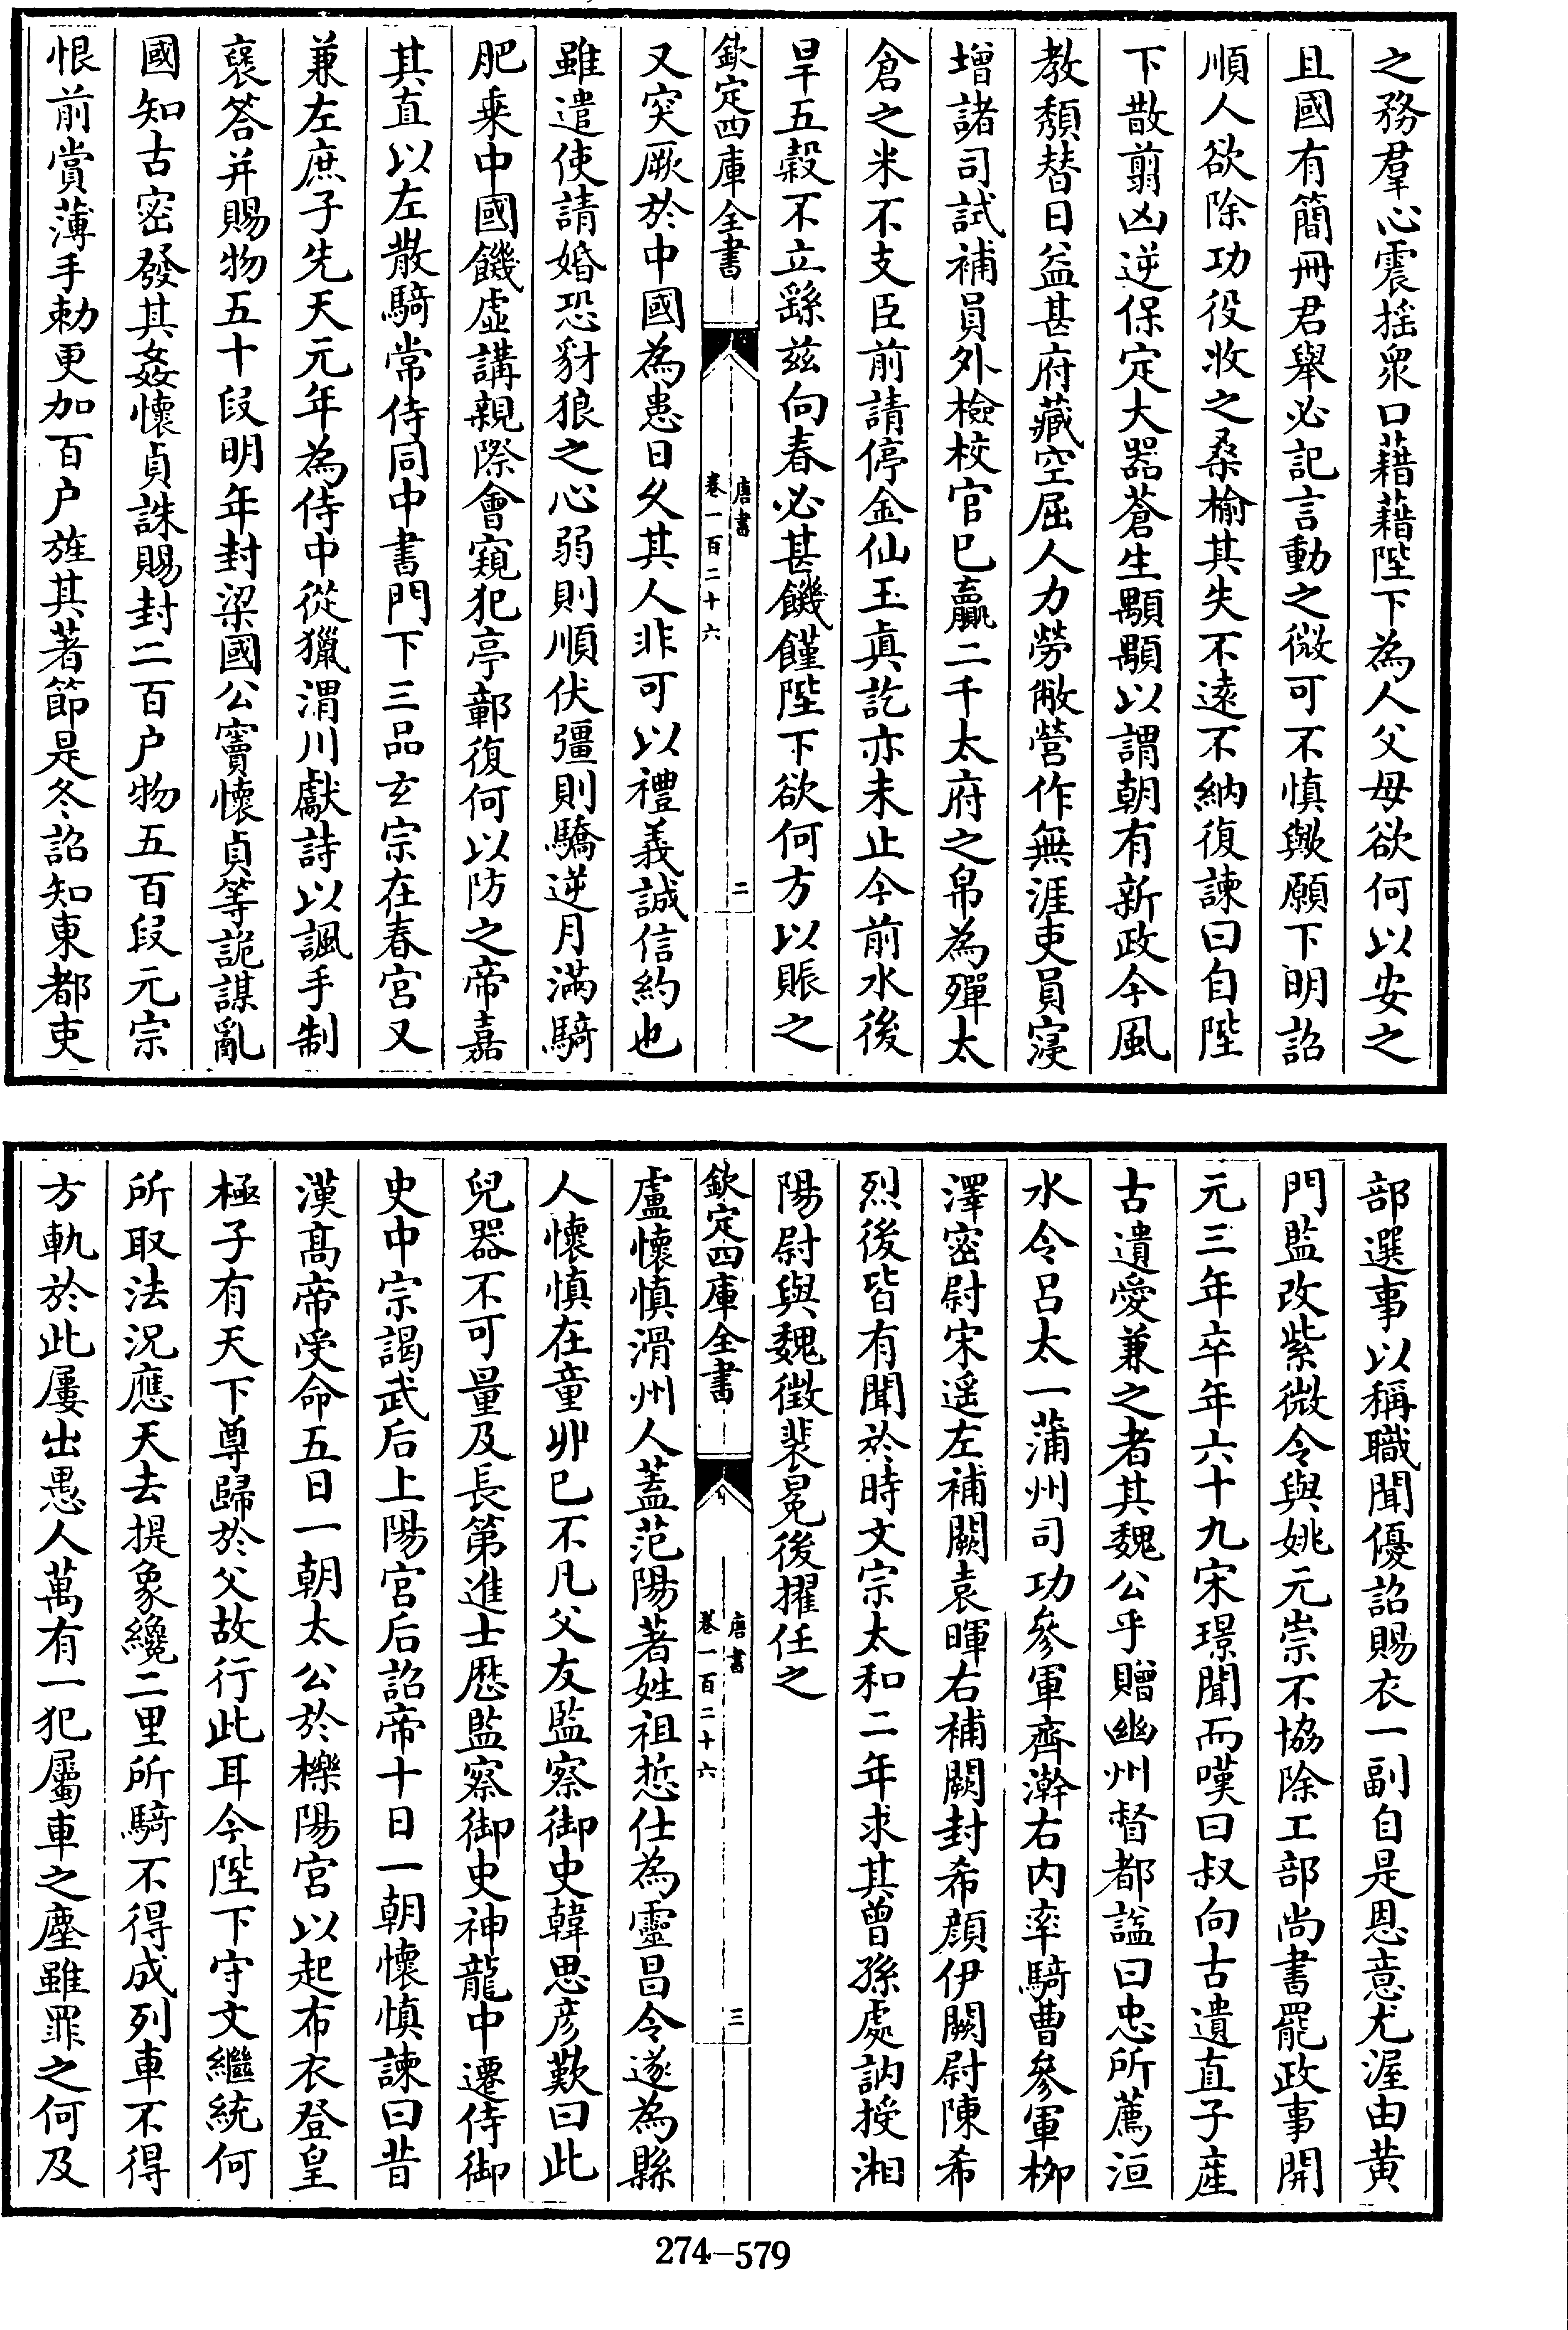 之務羣心震摇衆口藉藉陛下為人父母欲何以安之
且國有簡冊君舉必記言動之微可不慎歟願下明詔
順人欲除功役收之桑榆其失不遠不納復諫曰自陛
下㪚翦凶逆保定大器蒼生顒顒以謂朝有新政今風
教頽替日益甚府藏空屈人力勞敝營作無涯吏員寖
增諸司試補員外檢校官已贏二千太府之帛為殫太
倉之米不支臣前請停金仙玉真訖亦未止今前水後
旱五穀不立繇兹向春必甚饑饉陛下欲何方以賑之
欽定四庫全書
唐書
卷一百二十六
二
又突厥於中國為患日久其人非可以禮義誠信約也
雖遣使請婚恐豺狼之心弱則順伏彊則驕逆月滿騎
肥乗中國饑虛講親際會窺犯亭鄣復何以防之帝嘉
其直以左散騎常侍同中書門下三品玄宗在春宮又
兼左庶子先天元年為侍中從獵渭川獻詩以諷手制
襃答并賜物五十叚明年封梁國公竇懷貞等詭謀亂
國知古密發其姦懷貞誅賜封二百户物五百叚元宗
恨前賞薄手勅更加百户旌其著節是冬詔知東都吏
部選事以稱職聞優詔賜衣一副自是恩意尤渥由黄
門監改紫微令與姚元崇不協除工部尚書罷政事開
元三年卒年六十九宋璟聞而嘆曰叔向古遺直子産
古遺愛兼之者其魏公乎贈幽州督都諡曰忠所薦洹
水令吕太一蒲州司功參軍齊澣右内率騎曹參軍栁
澤密尉宋遥左補闕袁暉右補闕封希顔伊闕尉陳希
烈後皆有聞於時文宗太和二年求其曾孫處訥授湘
陽尉與魏徴裴冕後擢任之
欽定四庫全書
唐書
卷一百二十六
三
盧懷慎滑州人蓋范陽著姓祖悊仕為靈昌令遂為縣
人懷慎在童丱已不凡父友監察御史韓思彦歎曰此
兒器不可量及長第進士歴監察御史神龍中遷侍御
史中宗謁武后上陽宮后詔帝十日一朝懷慎諫曰昔
漢髙帝受命五日一朝太公於櫟陽宮以起布衣登皇
極子有天下尊歸於父故行此耳今陛下守文繼統何
所取法況應天去提象纔二里所騎不得成列車不得
方軌於此屢出愚人萬有一犯屬車之塵雖罪之何及
274-579